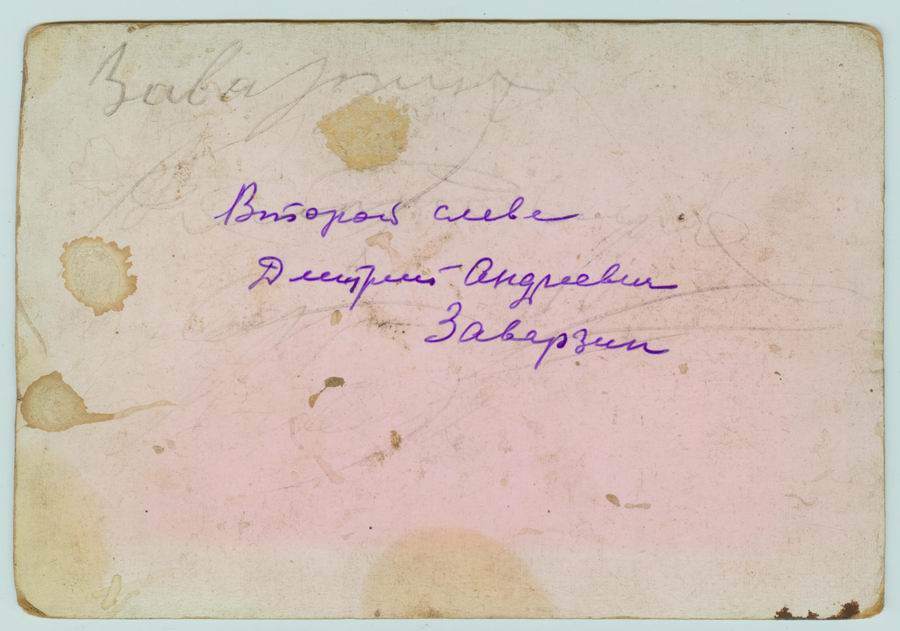 Заварзин
Второй слева
Дмитрий Андреевич
Заварзин